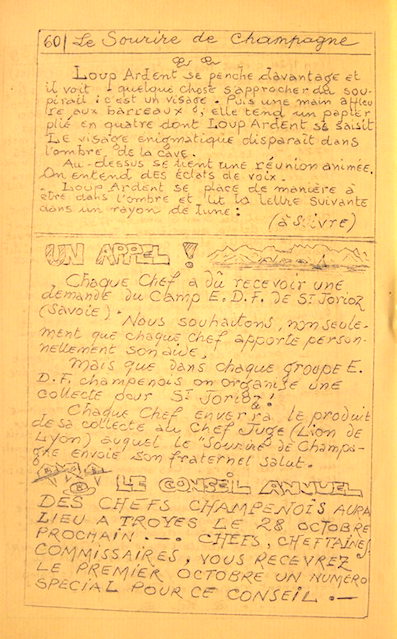 60/ Le Sourire de Champagne
Loup Ardent se penche davantage et
il voit quelque chose s'approcher du sou-
pirail : c'est un visage. Puis une main affleu-
re aux barreaux ; elle tend un papier
plié en quatre dont Loup Ardent se saisit
Le visage énigmatique disparait dans
l'ombre de la cave.
Au-dessus se tient une réunion animée.
On entend des éclats de voix.
Loup Ardent se place de manière à
être dans l'ombre et lit la lettre suivante
dans un rayon de lune :
(à Suivre)
UN APPEL !
Chaque Chef a dû recevoir une
demande du Camp E.D.F. de St Jorioz
(Savoie).
Nous souhaitons, non seule-
ment que chaque chef apporte person-
nellement son aide,
Mais que dans chaque groupe E.
D.F. champenois on organise une
collecte pour St Jorioz !
Chaque Chef enverra le produit
de sa collecte au Chef Juge (Lion de
Lyon) auquel le "Sourire de Champa-
gne envoie son fraternel salut.
LE CONSEIL ANNUEL
DES CHEFS CHAMPENOIS AURA
LIEU A TROYES LE 28 OCTOBRE
PROCHAIN .—. CHEFS, CHEFTAINES,
COMMISSAIRES, VOUS RECEVREZ
LE PREMIER OCTOBRE UN NUMÉRO
SPECIAL POUR CE CONSEIL .—